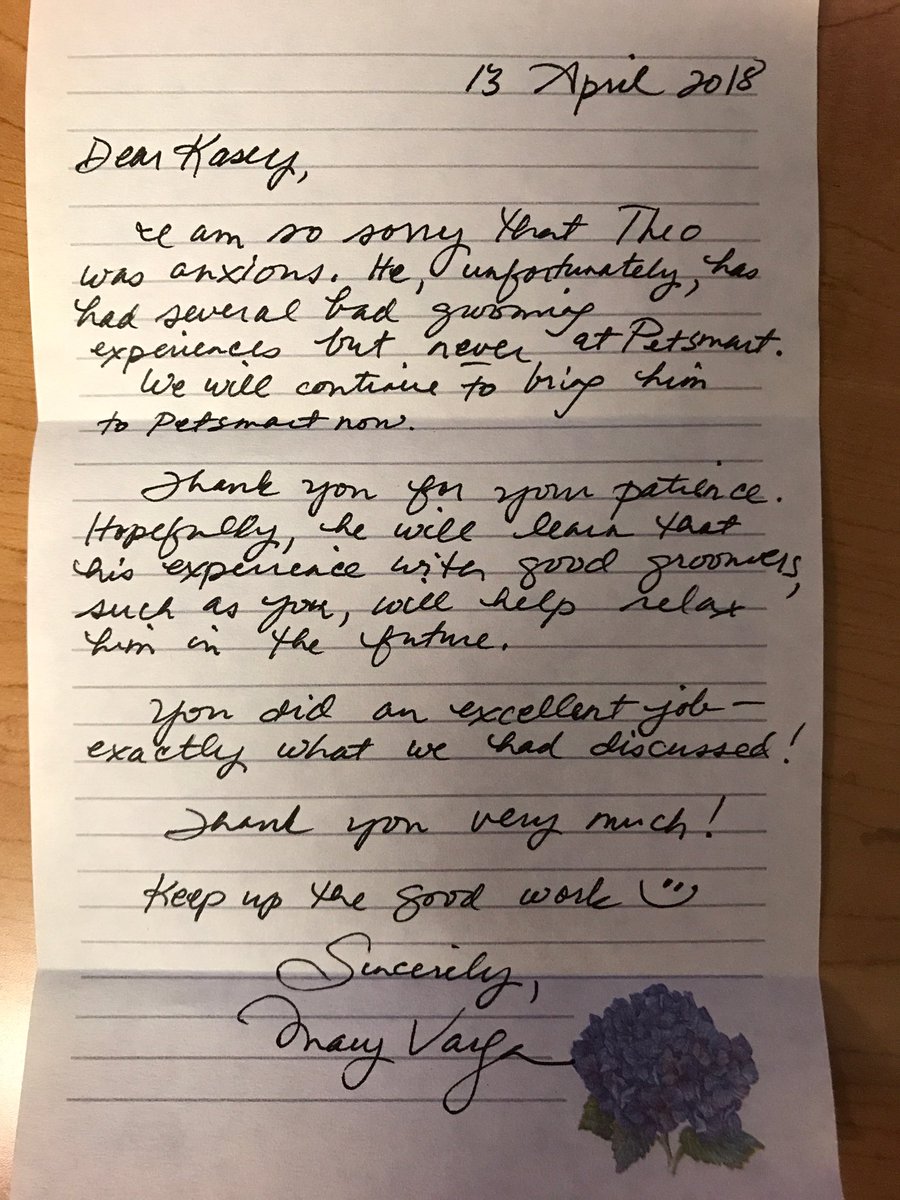 13 April 2018
Dear Kasey,
I am so sorry that Theo
was anxious. He, unfortunately, has
had several bad grooming
experiences but never at Petsmart.
We will continue to bring him
to Petsmart now.
Thank you for your patience.
Hopefully, he will learn that
his experience with good groomers,
such as you, will help relax
him in the future.
You did an excellent job—
exactly what we had discussed!
Thank you very much!
Keep up the good work
Sincerely,
Mary Varga